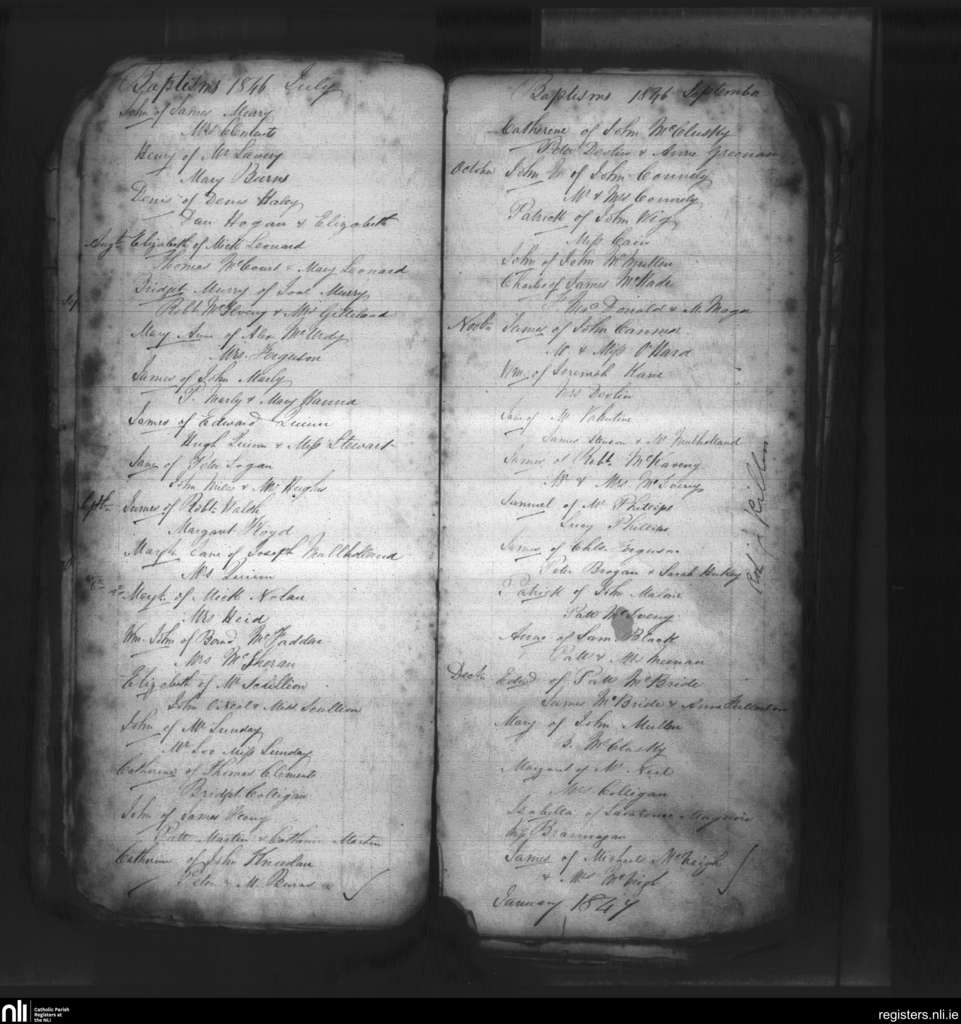 Baptisms 1846 July
John of James Meary
Mrs Clements
Henry of Mr Lavery
Mary Burns
Denis of Denis Haley
Dan Hogan & Elizabeth
Augt Elizabeth of Mick Leonard
Thomas McCourt & Mary Leonard
Bridget Murry of Murry
Robt McIlveny & Mrs Gilleland
Mary Ann of Alex McUrdy
Mrs Ferguson
James of John Marly
P. Marly & Mary Hanna
James of Edward Quinn
Hugh Quinn & Miss Stewart
Jane of Peter Logan
John & Mrs Hughes
Septr James of Robt Walsh
Margaret Floyd
Margt Jane of Joseph Mullholland
Mrs
Margt of Mick Nolan
Mrs Reid
Wm John of McFadden
Mrs
Elizabeth of Mr Scullion
John O'Neal & Miss Scullion
John of Mr Lunday
Mr Miss Lunday
Catherine of Thomas Clements
Bridgt Colligan
John of James
Patt Martin & Catherine Martin
Catherine of John
Peter & M. Burns
Baptisms 1846 September
Catherine of John McClusky
Peter Devlin & Anne Greenan
October John W of John Connely
Mr & Mrs Connely
Patrick of John
Miss Cain
John of John McMullen
Charles of James McKade
Thos Donald & M. Magee
Novbr James of John Cannon
Mr & Miss O'Hara
Wm. of Jeremiah Kane
Mrs Devlin
Jane of Mr Valentine
James & Mr Mulholland
James of Robt McKaveny
Mr & Mrs McIveny
Samuel of Mr Phillips
Lucy Phillips
James of Chls Ferguson
Peter Brogan & Sarah
Patrick of John
Patt McIveny
Anne of Sam Black
Patt & Mr
Decbr Edwd of Patt McBride
James McBride & Anne
Mary of John Mullen
McClusky
Margaret of Mr Neil
Mrs Colligan
Isabella of Lawrence
by Brannagan
James of Michael McVeigh
& Mrs McVeigh
January 1847
nli
Catholic Parish
Registers at
the NLI
registers.nli.ie